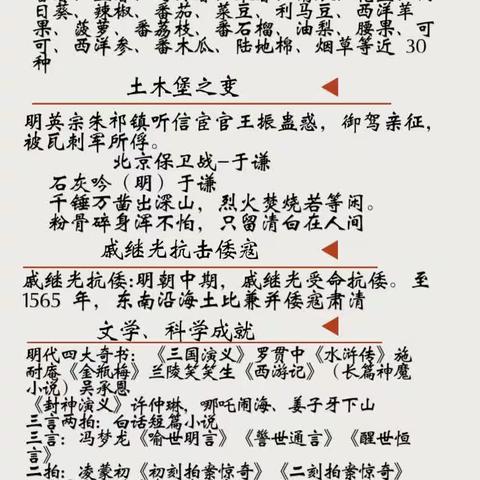 日葵、辣椒、番茄、菜豆、利马豆、西洋苹
果、菠萝、番荔枝、番石榴、油梨、腰果、可
可、西洋参、番木瓜、陆地棉、烟草等近 30
种
土木堡之变
明英宗朱祁镇听信宦官王振蛊惑，御驾亲征，
被瓦刺军所俘。
北京保卫战-于谦
石灰吟（明）于谦
千锤万凿出深山，烈火焚烧若等闲。
粉骨碎身浑不怕，只留清白在人间
戚继光抗击倭寇
戚继光抗倭:明朝中期，戚继光受命抗倭。至
1565 年，东南沿海土比兼并倭寇肃清
文学、科学成就
明代四大奇书：《三国演义》罗贯中《水浒传》施
耐庵《金瓶梅》兰陵笑笑生《西游记》（长篇神魔
小说）吴承恩
《封神演义》许仲琳，哪吒闹海、姜子牙下山
三言两拍：白话短篇小说
三言：冯梦龙《喻世明言》《警世通言》《醒世恒
言》
二拍：凌蒙初《初刻拍案惊奇》《二刻拍案惊奇》